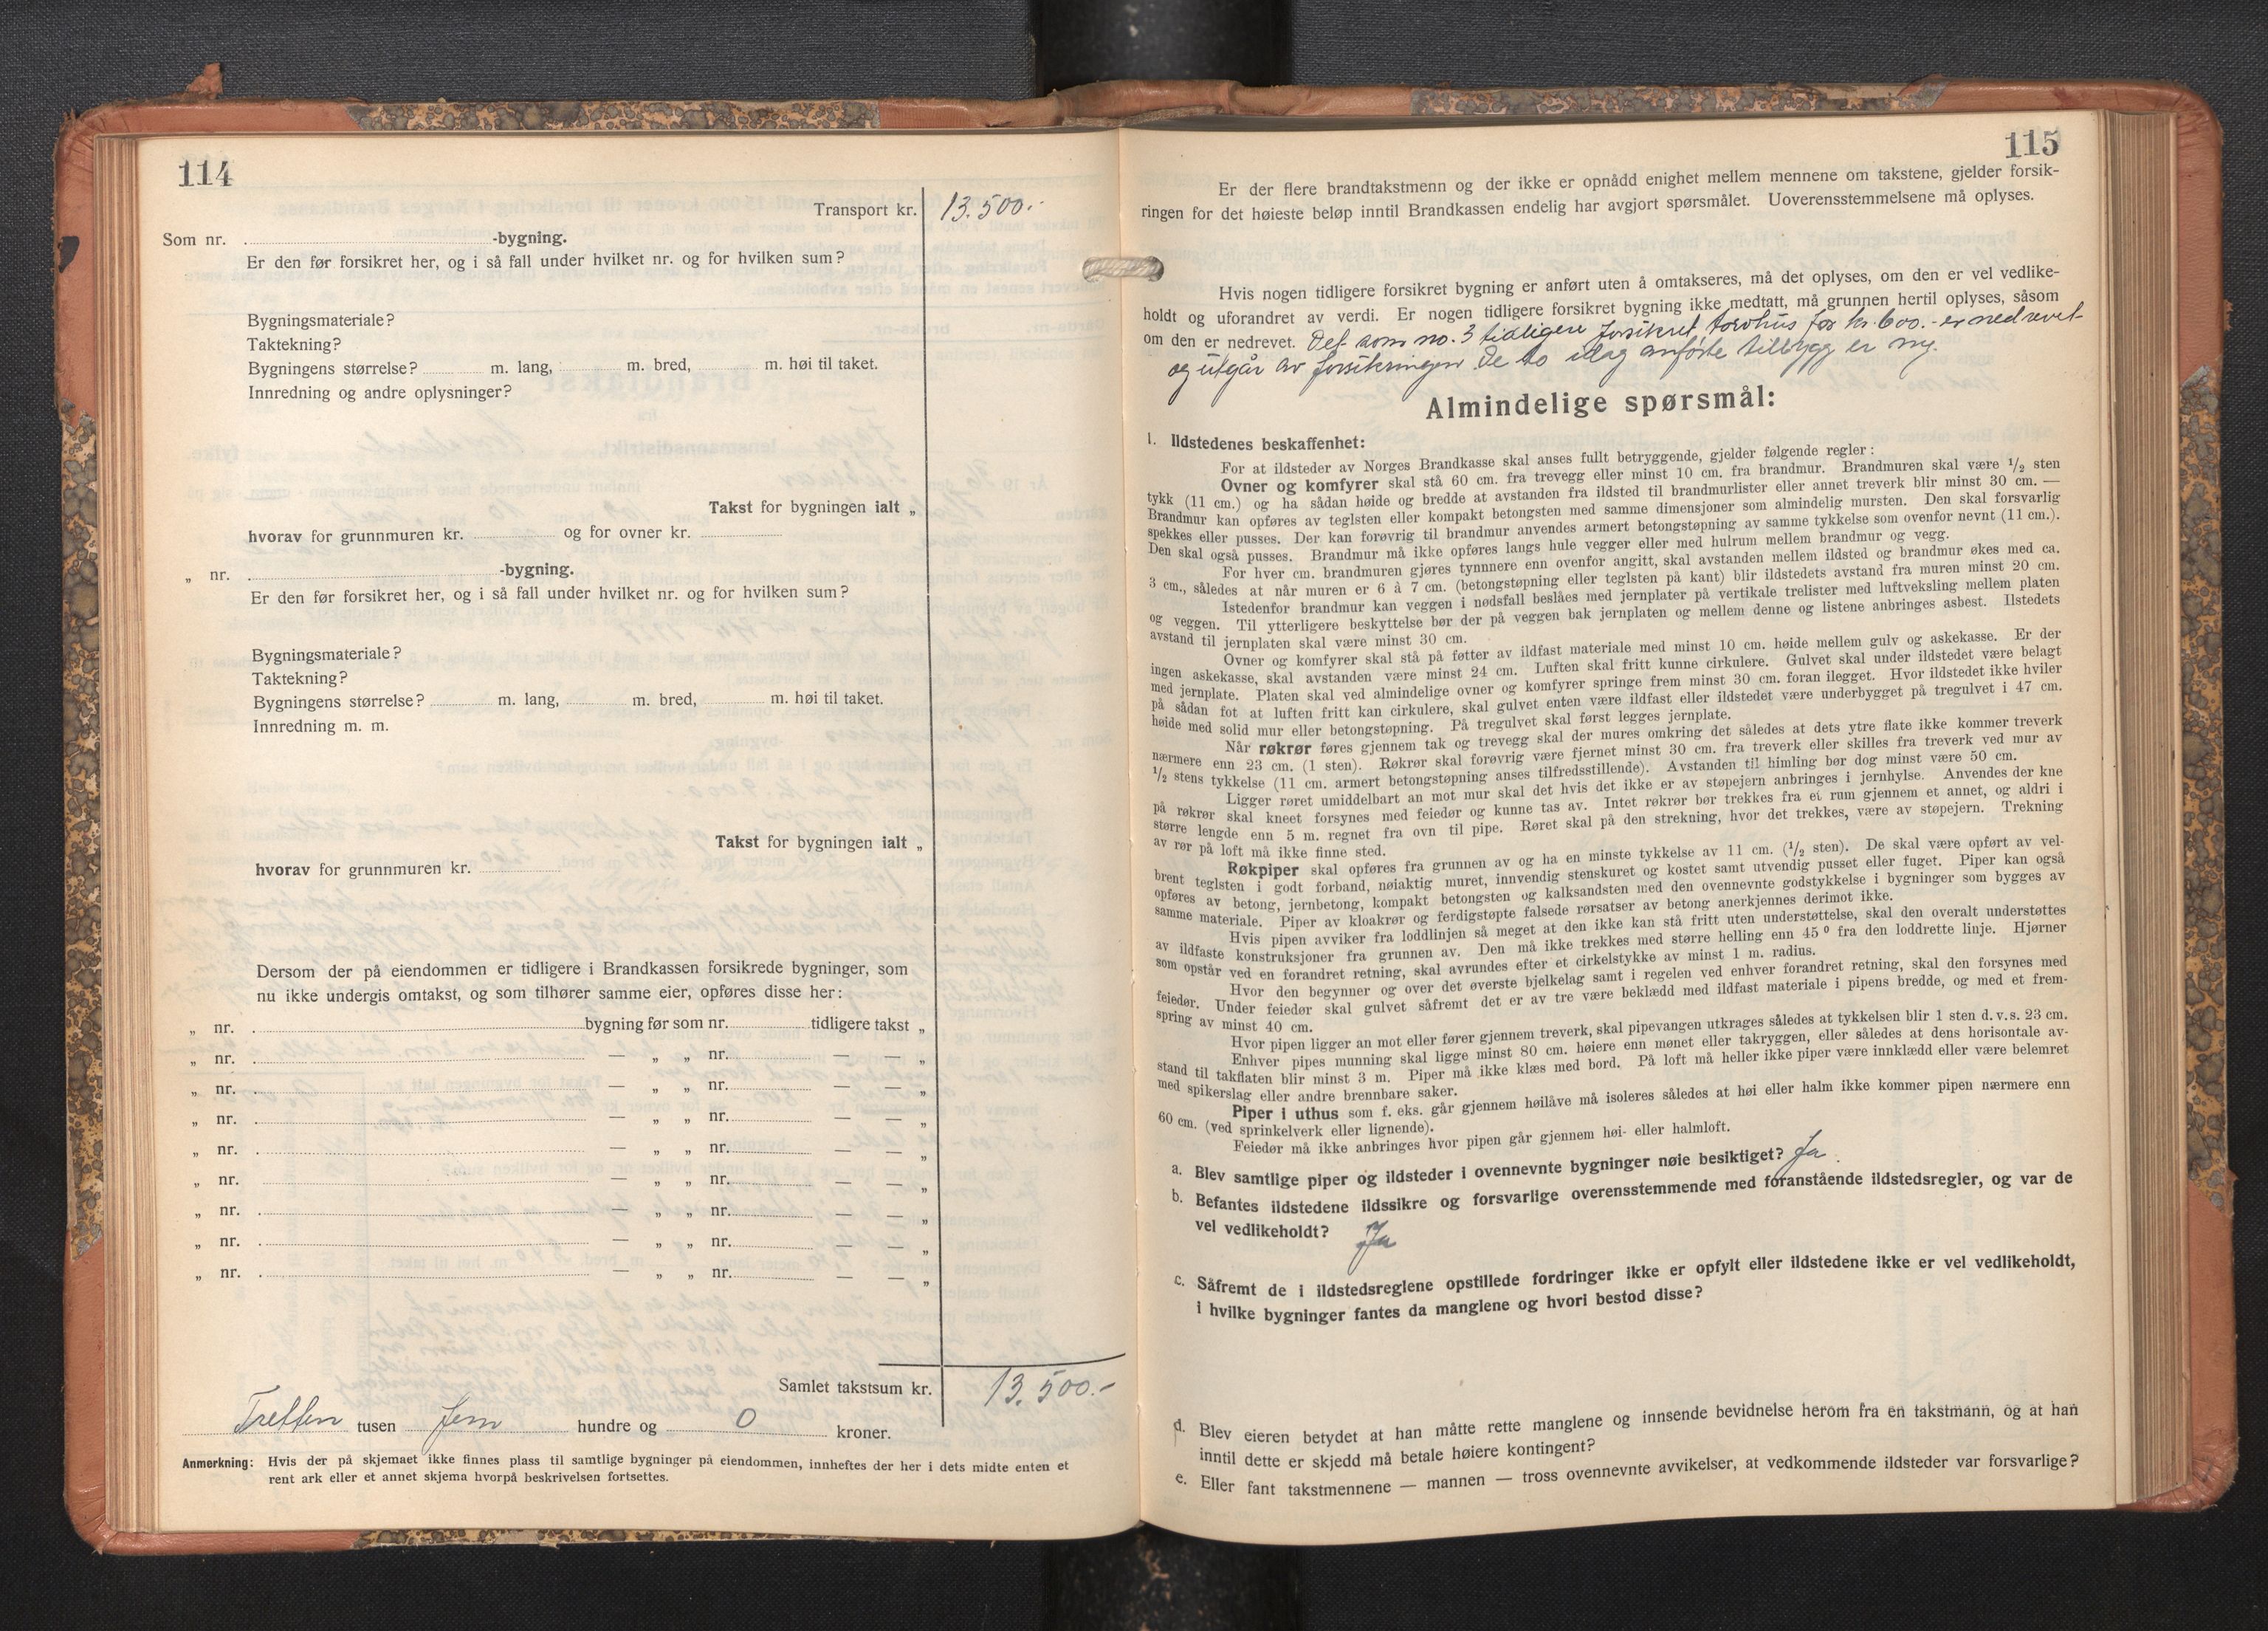 114
Transport kr. 13.500.-
Som nr. -bygning.
Er den før forsikret her, og i så fall under hvilket nr. og for hvilken sum?
Bygningsmateriale?
Taktekning?
Bygningens størrelse? m. lang, m. bred, m. høi til taket.
Innredning og andre oplysninger?
Takst for bygningen ialt „
hvorav for grunnmuren kr. og for ovner kr.
„ nr. -bygning.
Er den før forsikret her, og i så fall under hvilket nr. og for hvilken sum?
Bygningsmateriale?
Taktekning?
Bygningens størrelse? m. lang, m. bred, m. høi til taket.
Innredning m. m.
Takst for bygningen ialt „
hvorav for grunnmuren kr.
Dersom der på eiendommen er tidligere i Brandkassen forsikrede bygninger, som
nu ikke undergis omtakst, og som tilhører samme eier, opføres disse her:
„ nr. bygning før som nr. tidligere takst „
„ nr. — „ „ nr. — — „
„ nr. — „ „ nr. — — „
„ nr. — „ „ nr. — — „
„ nr. — „ „ nr. — — „
„ nr. — „ „ nr. — — „
„ nr. — „ „ nr. — — „
„ nr. — „ „ nr. — — „
„ nr. — „ „ nr. — — „
Samlet takstsum kr. 13.500.-
Tretten tusen fem hundre og 0 kroner.
Anmerkning: Hvis der på skjemaet ikke finnes plass til samtlige bygninger på eiendommen, innheftes der her i dets midte enten et
rent ark eller et annet skjema hvorpå beskrivelsen fortsettes.
115
Er der flere brandtakstmenn og der ikke er opnådd enighet mellem mennene om takstene, gjelder forsik-
ringen for det høieste beløp inntil Brandkassen endelig har avgjort spørsmålet. Uoverensstemmelsene må oplyses.
Hvis nogen tidligere forsikret bygning er anført uten å omtakseres, må det oplyses, om den er vel vedlike-
holdt og uforandret av verdi. Er nogen tidligere forsikret bygning ikke medtatt, må grunnen hertil oplyses, såsom
om den er nedrevet. Det som no. 3 tidligere forsikret torvhus for kr. 600.- er nedrevet
og utgår av forsikringen. De to idag anførte tilbygg er ny.
Almindelige spørsmål:
1. Ildstedenes beskaffenhet:
For at ildsteder av Norges Brandkasse skal anses fullt betryggende, gjelder følgende regler:
Ovner og komfyrer skal stå 60 cm. fra trevegg eller minst 10 cm. fra brandmur. Brandmuren skal være 1/2 sten
tykk (11 cm.) og ha sådan høide og bredde at avstanden fra ildsted til brandmurlister eller annet treverk blir minst 30 cm. —
Brandmur kan opføres av teglsten eller kompakt betongsten med samme dimensjoner som almindelig mursten. Den skal forsvarlig
spekkes eller pusses. Der kan forøvrig til brandmur anvendes armert betongstøpning av samme tykkelse som ovenfor nevnt (11 cm.).
Den skal også pusses. Brandmur må ikke opføres langs hule vegger eller med hulrum mellem brandmur og vegg.
For hver cm. brandmuren gjøres tynnere enn ovenfor angitt, skal avstanden mellem ildsted og brandmur økes med ca.
3 cm., således at når muren er 6 à 7 cm. (betongstøpning eller teglsten på kant) blir ildstedets avstand fra muren minst 20 cm.
Istedenfor brandmur kan veggen i nødsfall beslåes med jernplater på vertikale trelister med luftveksling mellem platen
og veggen. Til ytterligere beskyttelse bør der på veggen bak jernplaten og mellem denne og listene anbringes asbest. Ilstedets
avstand til jernplaten skal være minst 30 cm.
Ovner og komfyrer skal stå på føtter av ildfast materiale med minst 10 cm. høide mellem gulv og askekasse. Er der
ingen askekasse, skal avstanden være minst 24 cm. Luften skal fritt kunne cirkulere. Gulvet skal under ildstedet være belagt
med jernplate. Platen skal ved almindelige ovner og komfyrer springe frem minst 30 cm. foran ilegget. Hvor ildstedet ikke hviler
på sådan fot at luften fritt kan cirkulere, skal gulvet enten være ildfast eller ildstedet være underbygget på tregulvet i 47 cm.
høide med solid mur eller betongstøpning. På tregulvet skal først legges jernplate.
Når røkrør føres gjennem tak og trevegg skal der mures omkring det således at dets ytre flate ikke kommer treverk
nærmere enn 23 cm. (1 sten). Røkrør skal forøvrig være fjernet minst 30 cm. fra treverk eller skilles fra treverk ved mur av
1/2 stens tykkelse (11 cm. armert betongstøpning anses tilfredsstillende). Avstanden til himling bør dog minst være 50 cm.
Ligger røret umiddelbart an mot mur skal det hvis det ikke er av støpejern anbringes i jernhylse. Anvendes der kne
på røkrør skal kneet forsynes med feiedør og kunne tas av. Intet røkrør bør trekkes fra et rum gjennem et annet, og aldri i
større lengde enn 5 m. regnet fra ovn til pipe. Røret skal på den strekning, hvor det trekkes, være av støpejern. Trekning
av rør på loft må ikke finne sted.
Røkpiper skal opføres fra grunnen av og ha en minste tykkelse av 11 cm. (1/2 sten). De skal være opført av vel-
brent teglsten i godt forband, nøiaktig muret, innvendig stenskuret og kostet samt utvendig pusset eller fuget. Piper kan også
opføres av betong, jernbetong, kompakt betongsten og kalksandsten med den ovennevnte godstykkelse i bygninger som bygges av
samme materiale. Piper av kloakrør og ferdigstøpte falsede rørsatser av betong anerkjennes derimot ikke.
Hvis pipen avviker fra loddlinjen så meget at den ikke kan stå fritt uten understøttelse, skal den overalt understøttes
av ildfaste konstruksjoner fra grunnen av. Den må ikke trekkes med større helling enn 45° fra den loddrette linje. Hjørner
som opstår ved en forandret retning, skal avrundes efter et cirkelstykke av minst 1 m. radius.
Hvor den begynner og over det øverste bjelkelag samt i regelen ved enhver forandret retning, skal den forsynes med
feiedør. Under feiedør skal gulvet såfremt det er av tre være beklædd med ildfast materiale i pipens bredde, og med et frem-
spring av minst 40 cm.
Hvor pipen ligger an mot eller fører gjennem treverk, skal pipevangen utkrages således at tykkelsen blir 1 sten d. v. s. 23 cm.
Enhver pipes munning skal ligge minst 80 cm. høiere enn mønet eller takryggen, eller således at dens horisontale av-
stand til takflaten blir minst 3 m. Piper må ikke klæs med bord. På loft må heller ikke piper være innklædd eller være belemret
med spikerslag eller andre brennbare saker.
Piper i uthus som f. eks. går gjennem høilåve må isoleres således at høi eller halm ikke kommer pipen nærmere enn
60 cm. (ved sprinkelverk eller lignende).
Feiedør må ikke anbringes hvor pipen går gjennem høi- eller halmloft.
a. Blev samtlige piper og ildsteder i ovennevnte bygninger nøie besiktiget? Ja
b. Befantes ildstedene ildssikre og forsvarlige overensstemmende med foranstående ildstedsregler, og var de
vel vedlikeholdt? Ja
c. Såfremt de i ildstedsreglene opstillede fordringer ikke er opfylt eller ildstedene ikke er vel vedlikeholdt,
i hvilke bygninger fantes da manglene og hvori bestod disse?
d. Blev eieren betydet at han måtte rette manglene og innsende bevidnelse herom fra en takstmann, og at han
inntil dette er skjedd må betale høiere kontingent?
e. Eller fant takstmennene — mannen — tross ovennevnte avvikelser, at vedkommende ildsteder var forsvarlige?